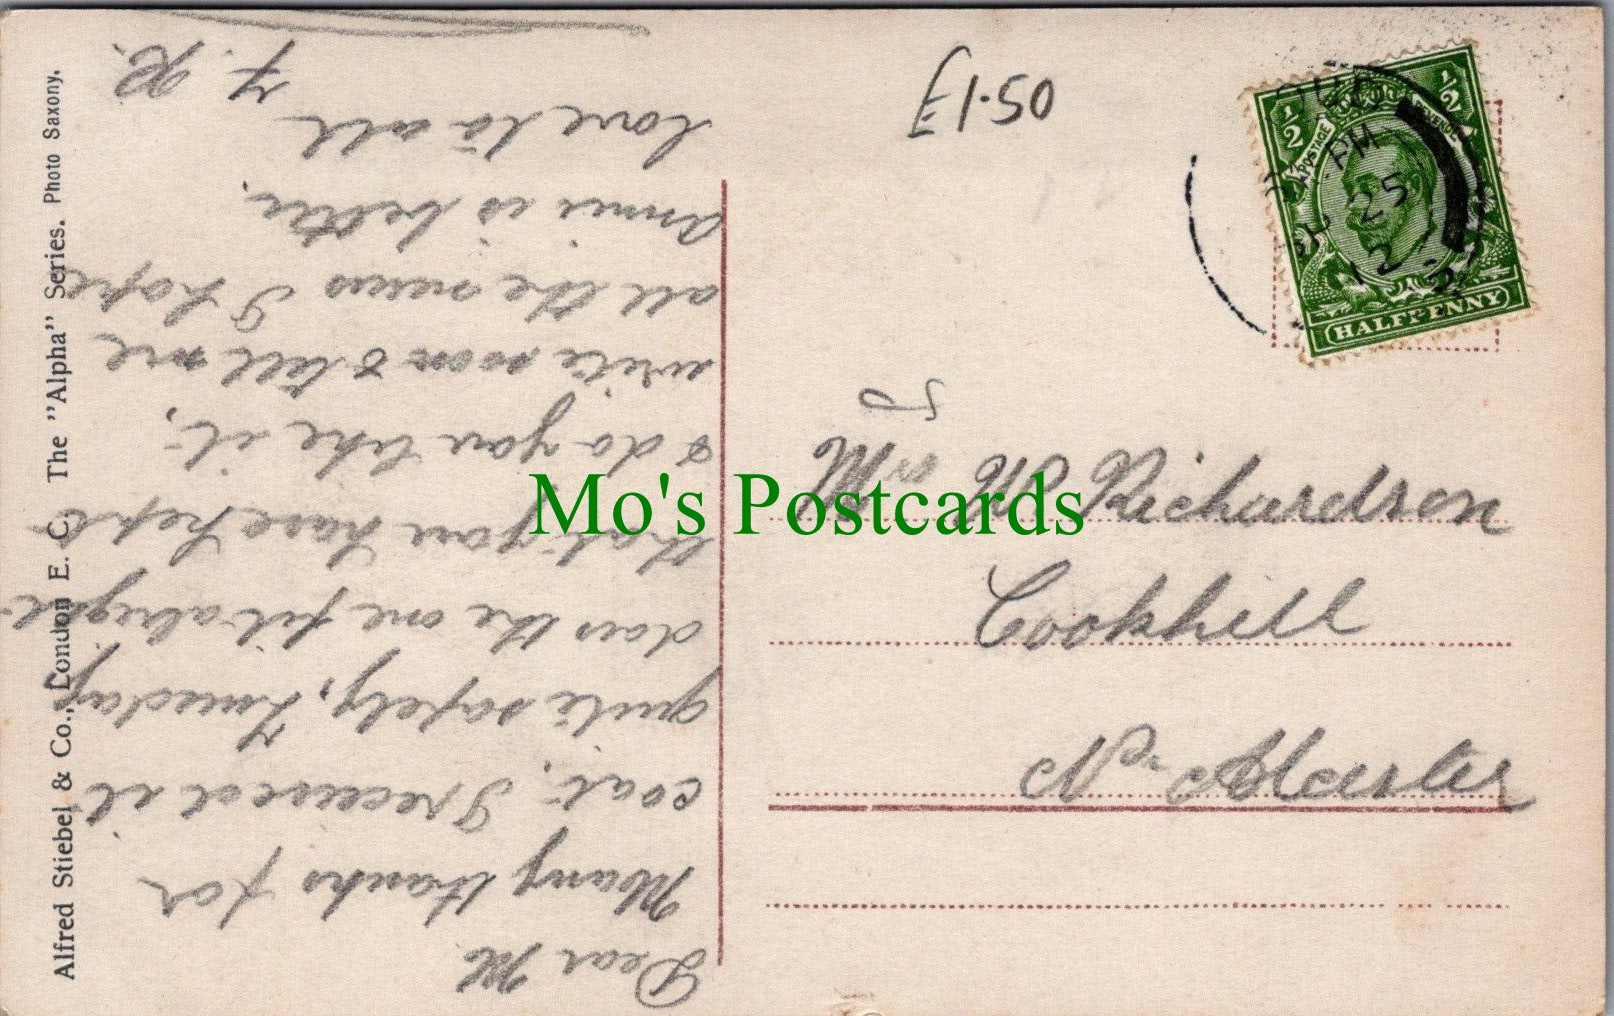 Dear M.
Many thanks for
coat, I received it
quite safely, Tuesday,
does the one fit alright
that you have kept
& do you like it,
write soon & tell me
all the news I hope
Annie is better,
love to all
F. R.
Alfred Stiebel & Co., London E. C. The "Alpha" Series. Photo Saxony.
£1.50
½ ½
POSTAGE REVENUE
HALFPENNY
PM
25
12
Richardson
Cookhill
Nr Alcester
Mo's Postcards